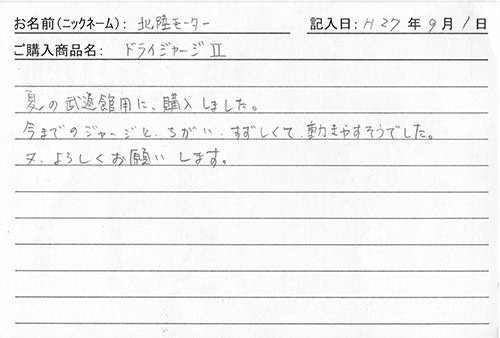 お名前(ニックネーム): 北陸モーター 記入日: H27年9月1日
ご購入商品名: ドライジャージⅡ
夏の武道館用に、購入しました。
今までのジャージと、ちがい、すずしくて、動きやすそうでした。
又、よろしくお願いします。